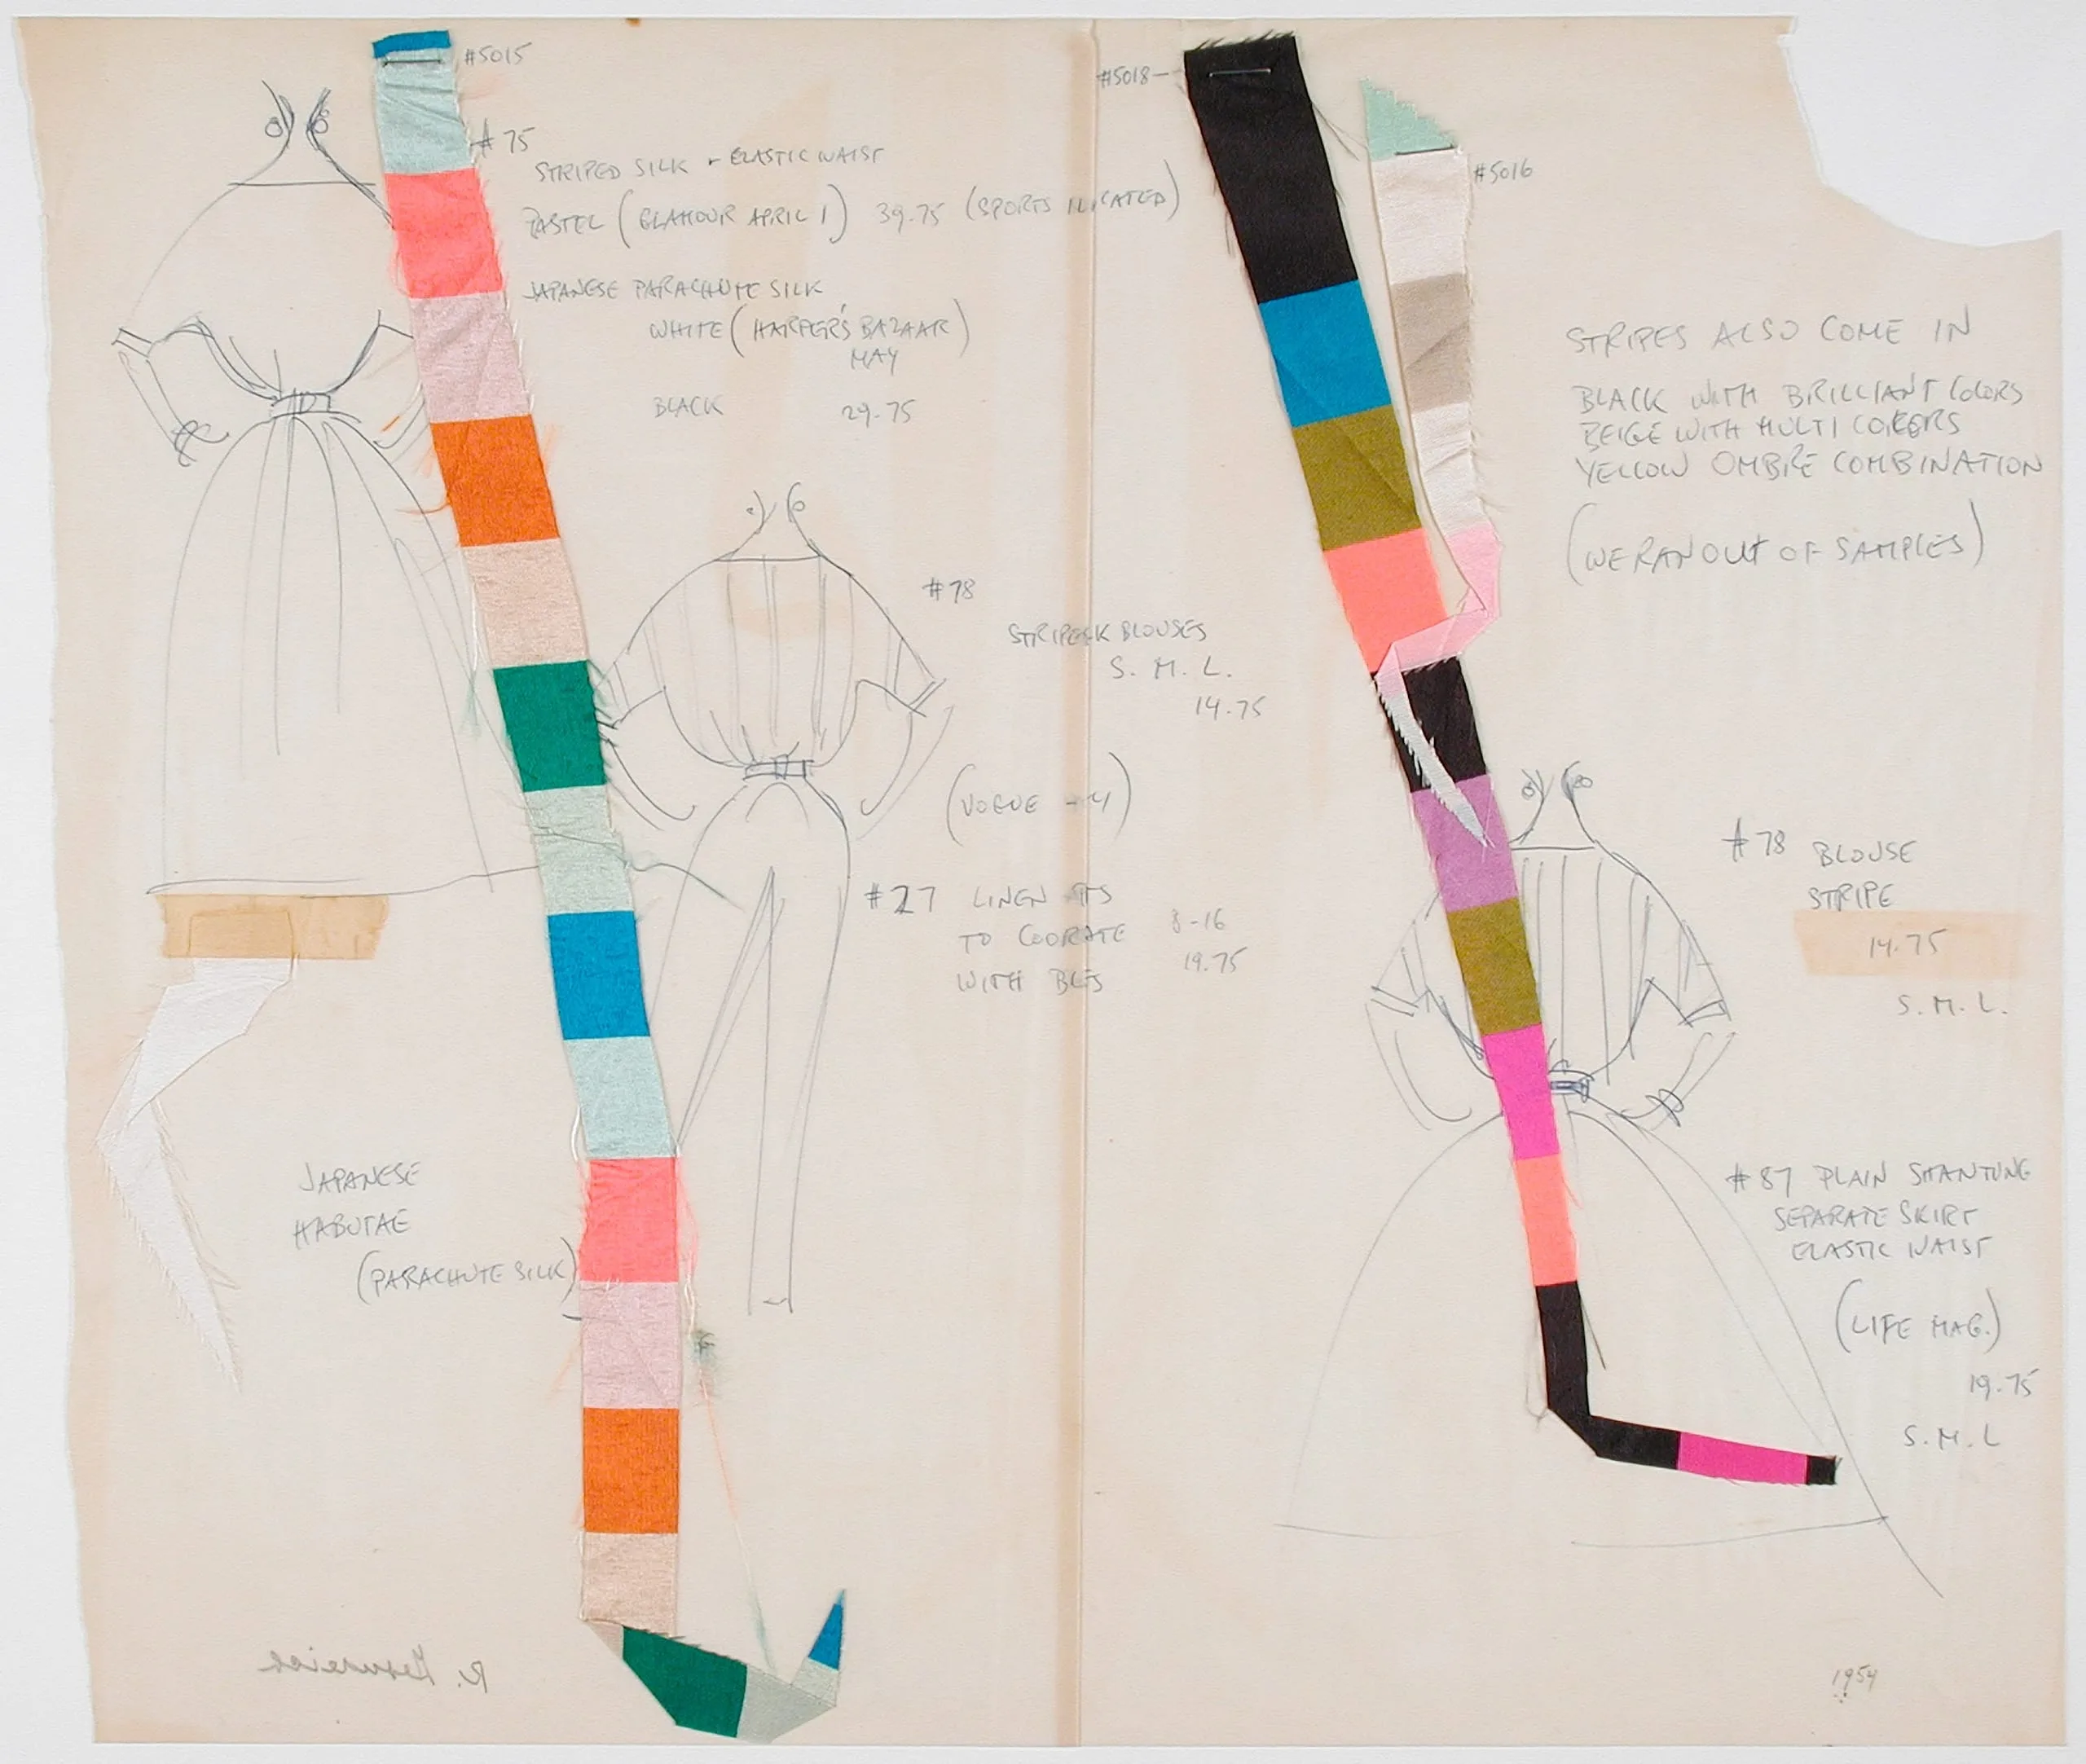 #5015
#75
STRIPED SILK - ELASTIC WAIST
PASTEL (GLAMOUR APRIL 1) 39.75 (SPORTS
JAPANESE PARACHUTE SILK
WHITE (HARPER'S BAZAAR)
MAY
BLACK 29.75
#78
BLOUSES
S. M. L.
14.75
(VOGUE
#27 LINEN
TO 8-16
WITH 19.75
JAPANESE
HABUTAE
(PARACHUTE SILK)
#5018
#5016
STRIPES ALSO COME IN
BLACK WITH BRILLIANT COLORS
BEIGE WITH MULTI COLORS
YELLOW OMBRE COMBINATION
(WE RAN OUT OF SAMPLES)
#78 BLOUSE
STRIPE
14.75
S. M. L.
#87 PLAIN SHANTUNG
SEPARATE SKIRT
ELASTIC WAIST
(LIFE MAG.)
19.75
S. M. L
1954